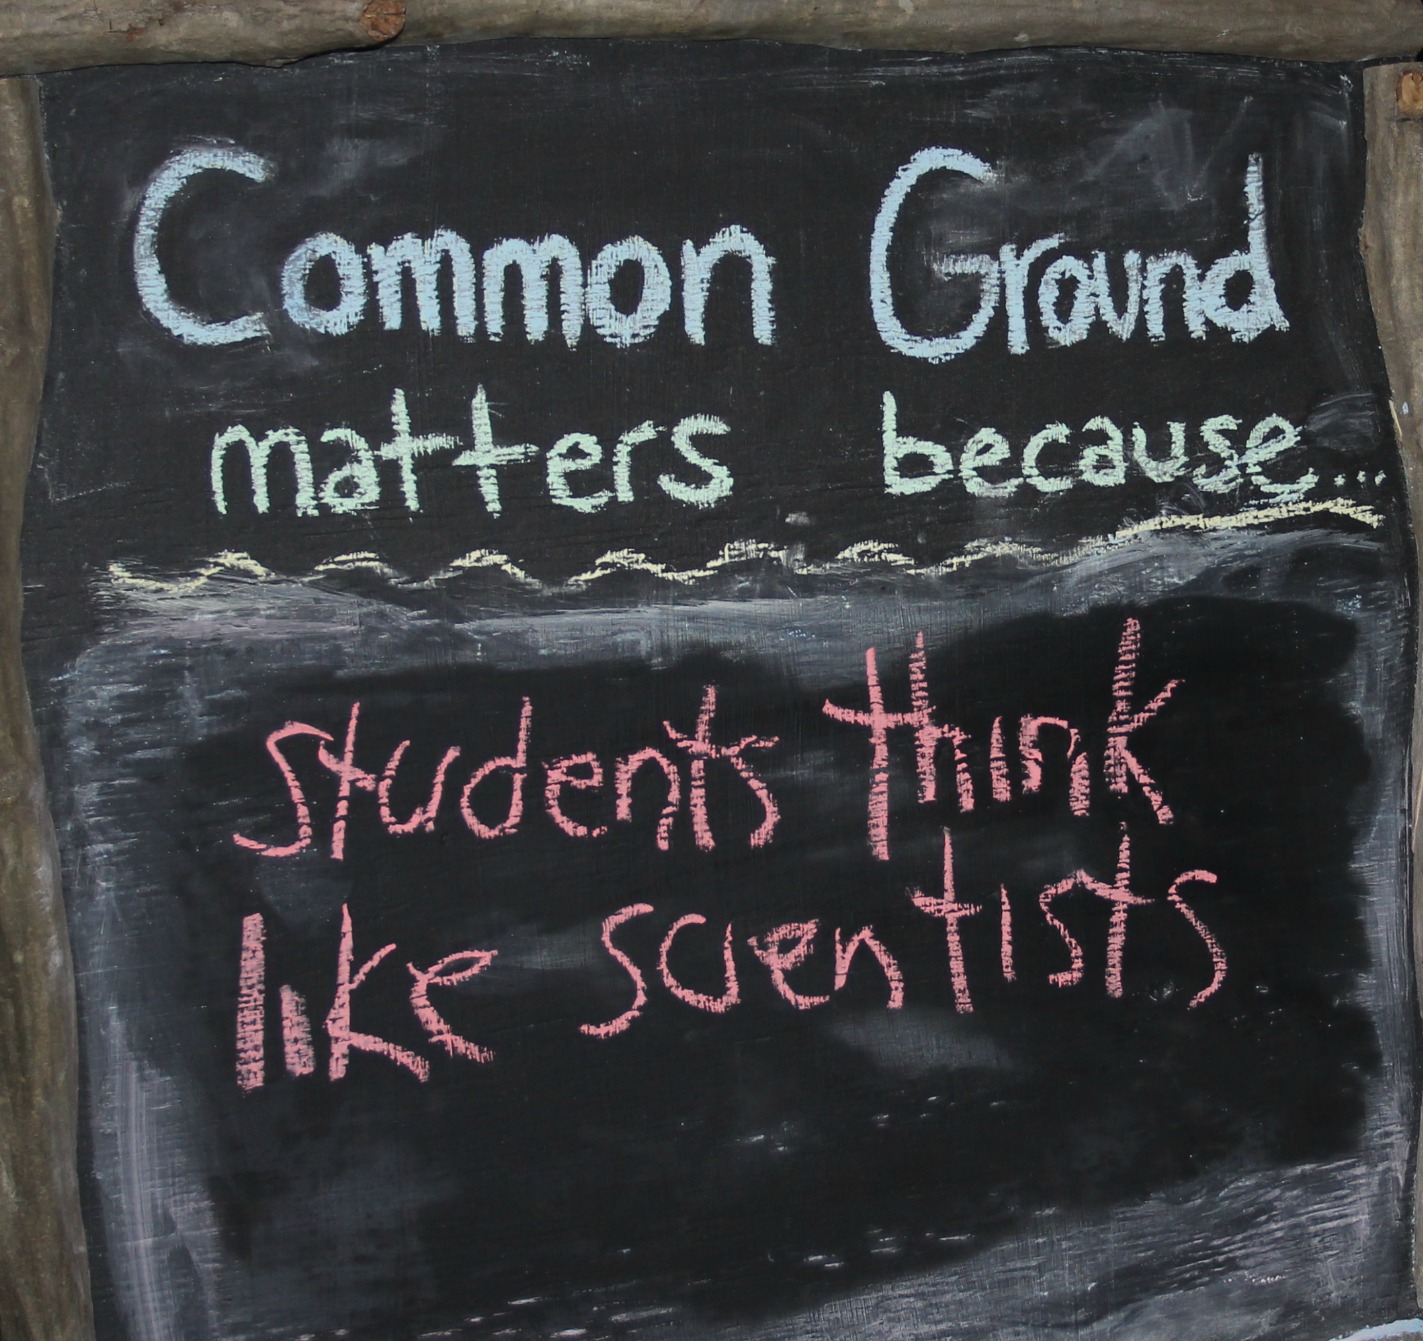 Common Ground
matters because...
students think
like scientists